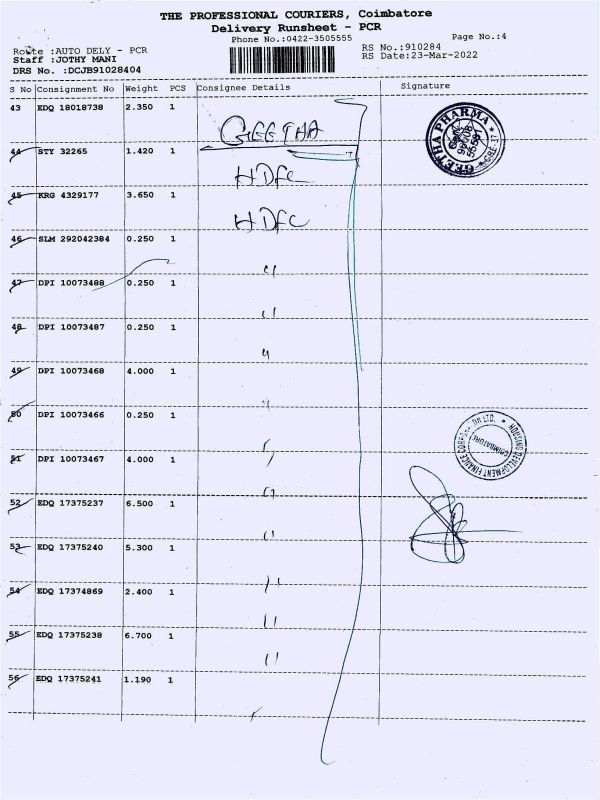 THE PROFESSIONAL COURIERS, Coimbatore
Delivery Runsheet - PCR
Phone No.:0422-3505555 Page No.:4
Route :AUTO DELY - PCR RS No.:910284
Staff :JOTHY MANI RS Date:23-Mar-2022
DRS No. :DCJB91028404
S No Consignment No Weight PCS Consignee Details Signature
43 EDQ 18018738 2.350 1
GEETHA
GEETHA PHARMA
44 STY 32265 1.420 1
HDFC
45 KRG 4329177 3.650 1
HDFC
46 SLM 292042384 0.250 1
"
47 DPI 10073488 0.250 1
"
48 DPI 10073487 0.250 1
"
49 DPI 10073468 4.000 1
"
50 DPI 10073466 0.250 1
"
HOUSING DEVELOPMENT FINANCE CORPORATION LTD.
COIMBATORE
51 DPI 10073467 4.000 1
"
52 EDQ 17375237 6.500 1
"
53 EDQ 17375240 5.300 1
"
54 EDQ 17374869 2.400 1
"
55 EDQ 17375238 6.700 1
"
56 EDQ 17375241 1.190 1